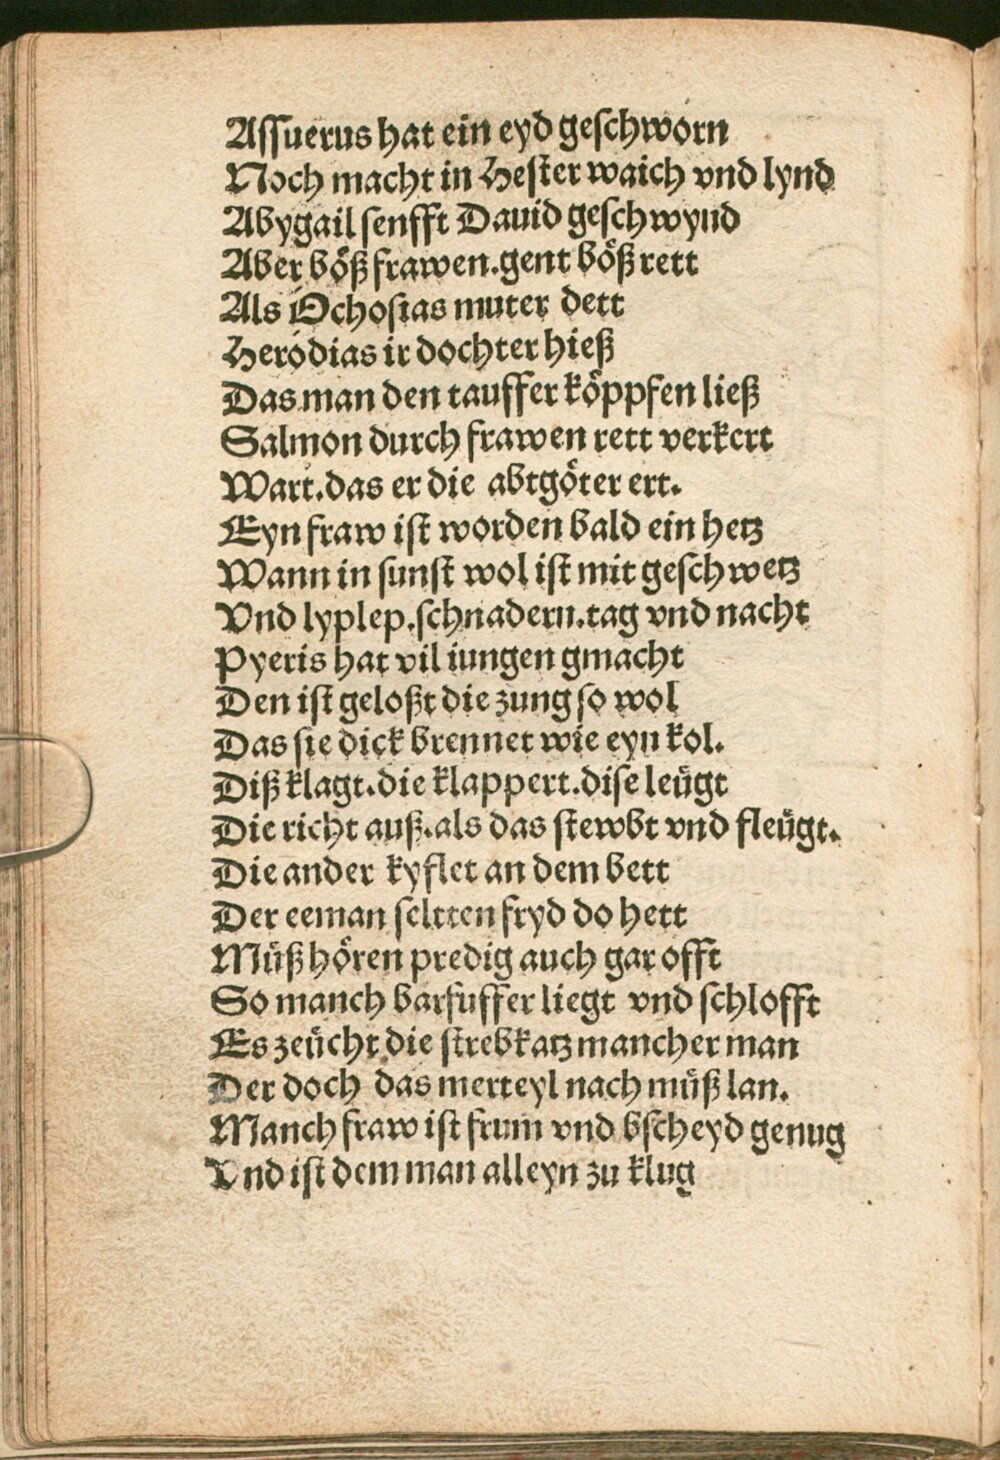 Assuerus hat ein eyd geschworn
Noch macht in Hester waich vnd lynd
Abygail senfft Dauid geschwynd
Aber böß frawen.gent böß rett
Als Ochosias muter dett
Herodias ir dochter hieß
Das man den tauffer köppfen ließ
Salmon durch frawen rett verkert
Wart.das er die abtgöter ert.
Eyn fraw ist worden bald ein hetz
Wann in sunst wol ist mit geschwetz
Vnd lyplep.schnadern.tag vnd nacht
Pyeris hat vil iungen gmacht
Den ist geloßt die zung so wol
Das sie dick brennet wie eyn kol.
Diß klagt.die klappert.dise leügt
Die richt auß.als das stewbt vnd fleügt.
Die ander kyflet an dem bett
Der eeman seltten fryd do hett
Müß hören predig auch gar offt
So manch barfuffer liegt vnd schlofft
Es zeücht die strebkatz mancher man
Der doch das merteyl nach müß lan.
Manch fraw ist frum vnd bscheyd genug
Vnd ist dem man alleyn zu klug